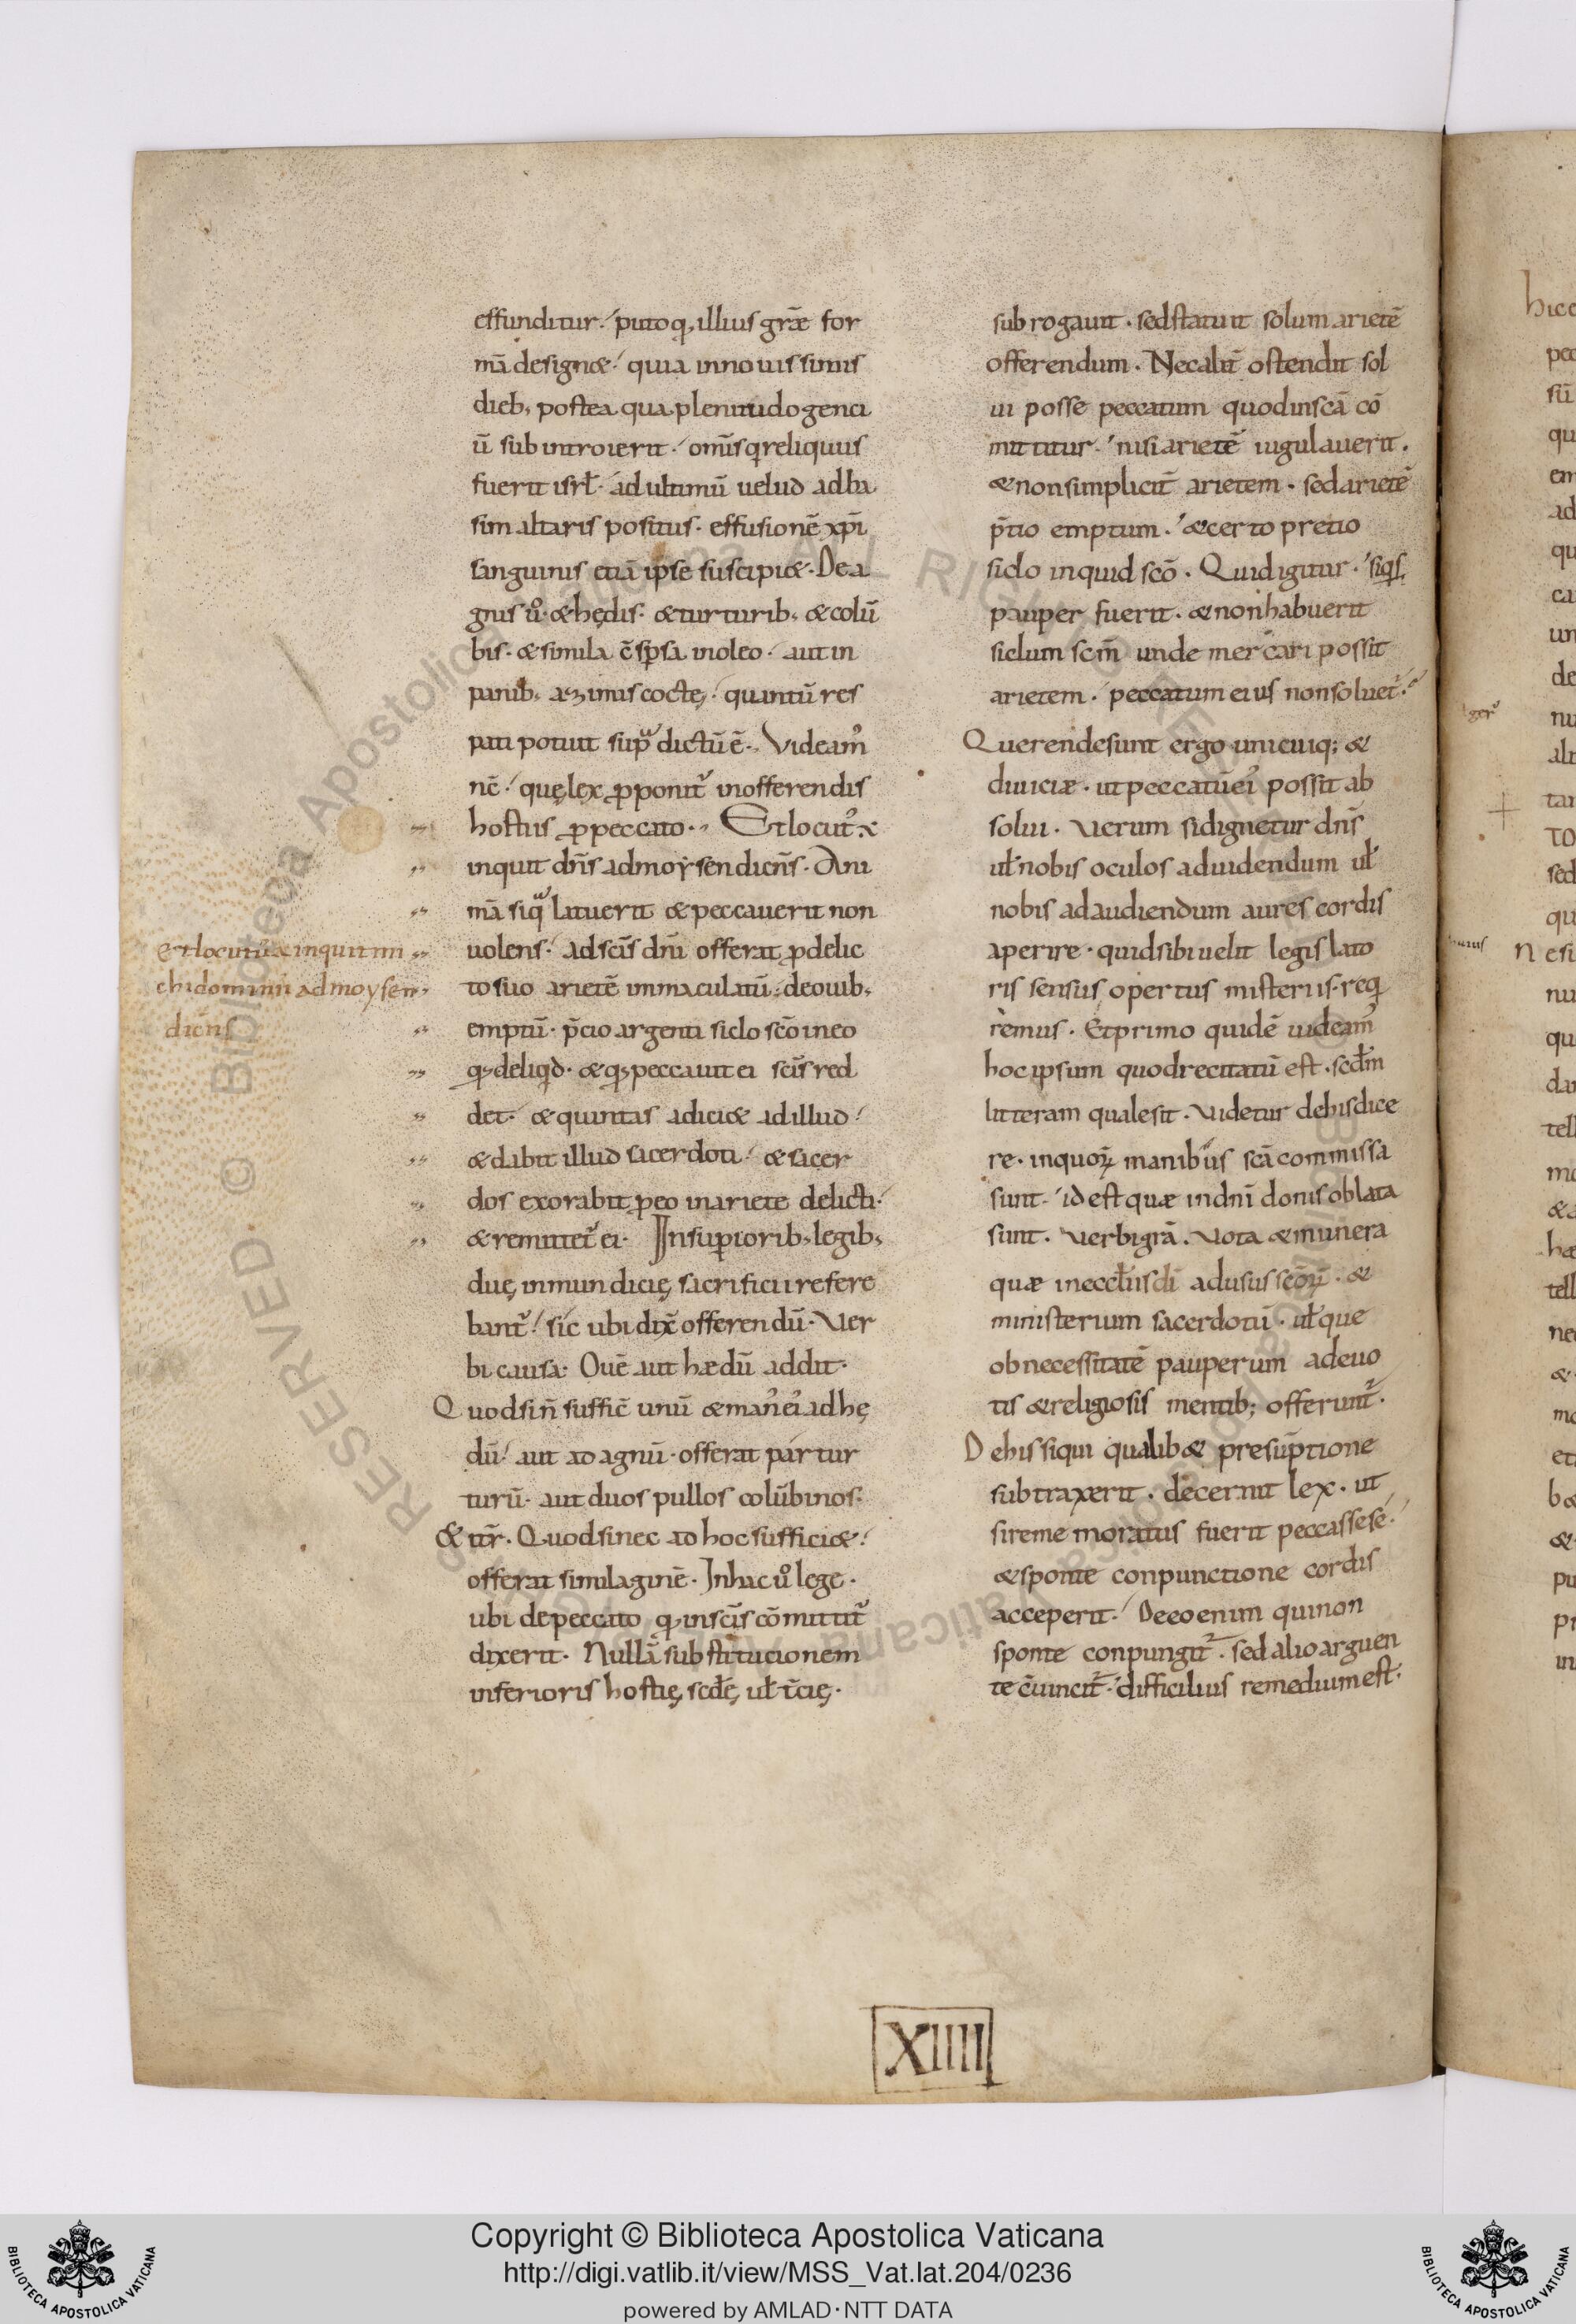 effunditur. puto q, illius grãe for
mã designæ. quia in nouissimis
dieb, postea qua plenitudo genci
ũ subintroierit. omĩs q reliquus
fuerit isrł. ad ultimũ uelud ad ba
sim altaris positus. effusionẽ xp̃i
sanguinis etiã ipse suscipiæ. De a
gnis ů. & hędis. & turturib, & colũ
bis. & simila c̃spsa in oleo. aut in
panib, azimis coctę. quantũ res
pati potuit sup̃ dictũ ẽ. Videam᾿
nẽ. quę lex ꝓponit᾿ in offerendis
hostiis ꝓ peccato. Et locut᾿ x̄
inquit dñs ad moysen dicñs. Ani
mã siq̃ latuerit & peccauerit non
uolens. ad scĩs dñi offerat ꝓ delic
to suo arietẽ immaculatũ. de ouib,
emptũ. p̃cio argenti siclo scõ in eo
q, deliqd. & q, peccauit ei scĩs red
det. & quintas adiciæ ad illud.
& dabit illud sacerdoti. & sacer
dos exorabit ꝓ eo in ariete delicti.
& remittet᾿ ei. In supiorib, legib,
duę inmundicię sacrificii refere
bant᾿. sic ubi dix̃ offerendũ. Ver
bi causa. Ouẽ aut hædũ addit.
Quod sin̄ suffic̄ unũ & man᾿ ei᾿ ad hę
dũ. aut ad agnũ. offerat par tur
turũ. aut duos pullos colũbinos.
& itr̃. Quod si nec ad hoc sufficiæ.
offerat similaginẽ. In hac ů lege.
ubi de peccato q, in scĩs cõmittit᾿
dixerit. Nullã substitucionem
inferioris hostię, scdę, uł t̃cię.
subrogauit. sed statuit solum arietẽ
offerendum. Nec alit̃ ostendit sol
ui posse peccatum quod in scã cõ
mittitur. nisi arietẽ iugulauerit.
& non simplicit̃ arietem. sed arietẽ
p̃tio emptum. & certo pretio
siclo inquid scõ. Quid igitur. siqs
pauper fuerit. & non habuerit
siclum scm̃ unde mercari possit
arietem. peccatum eius non soluet᾿.
Querende sunt ergo unicuiq; &
diuiciæ. ut peccatũ ei᾿ possit ab
solui. Verum si dignetur dñs
uł nobis oculos ad uidendum uł
nobis ad audiendum aures cordis
aperire. quid sibi uelit legislato
ris sensus opertus misteriis. req
remus. Et primo quidẽ uideam᾿
hoc ipsum quod recitatũ est. scdm̃
litteram quale sit. Videtur de his dice
re. in quoꝝ manibus scã commissa
sunt. id est quæ in dñi donis oblata
sunt. Verbi grã. Vota & munera
quæ in eccłiis dĩ ad usus scõꝝ. &
ministerium sacerdotũ. uł que
ob necessitatẽ pauperum a deuo
tis & religiosis mentib; offerunt᾿.
De his si qui qualibæ presũptione
subtraxerit. decernit lex. ut
si rememoratus fuerit peccasse se.
& sponte conpunctione cordis
acceperit. De eo enim qui non
sponte conpungit᾿. sed alio arguen
te c̃uincit᾿. difficilius remedium est.
et locutũ x̄ inquit mi
chi dominũ ad moysen
dicñs
XIIII
Copyright © Biblioteca Apostolica Vaticana
http://digi.vatlib.it/view/MSS_Vat.lat.204/0236
powered by AMLAD·NTT DATA
BIBLIOTECA APOSTOLICA VATICANA
BIBLIOTECA APOSTOLICA VATICANA